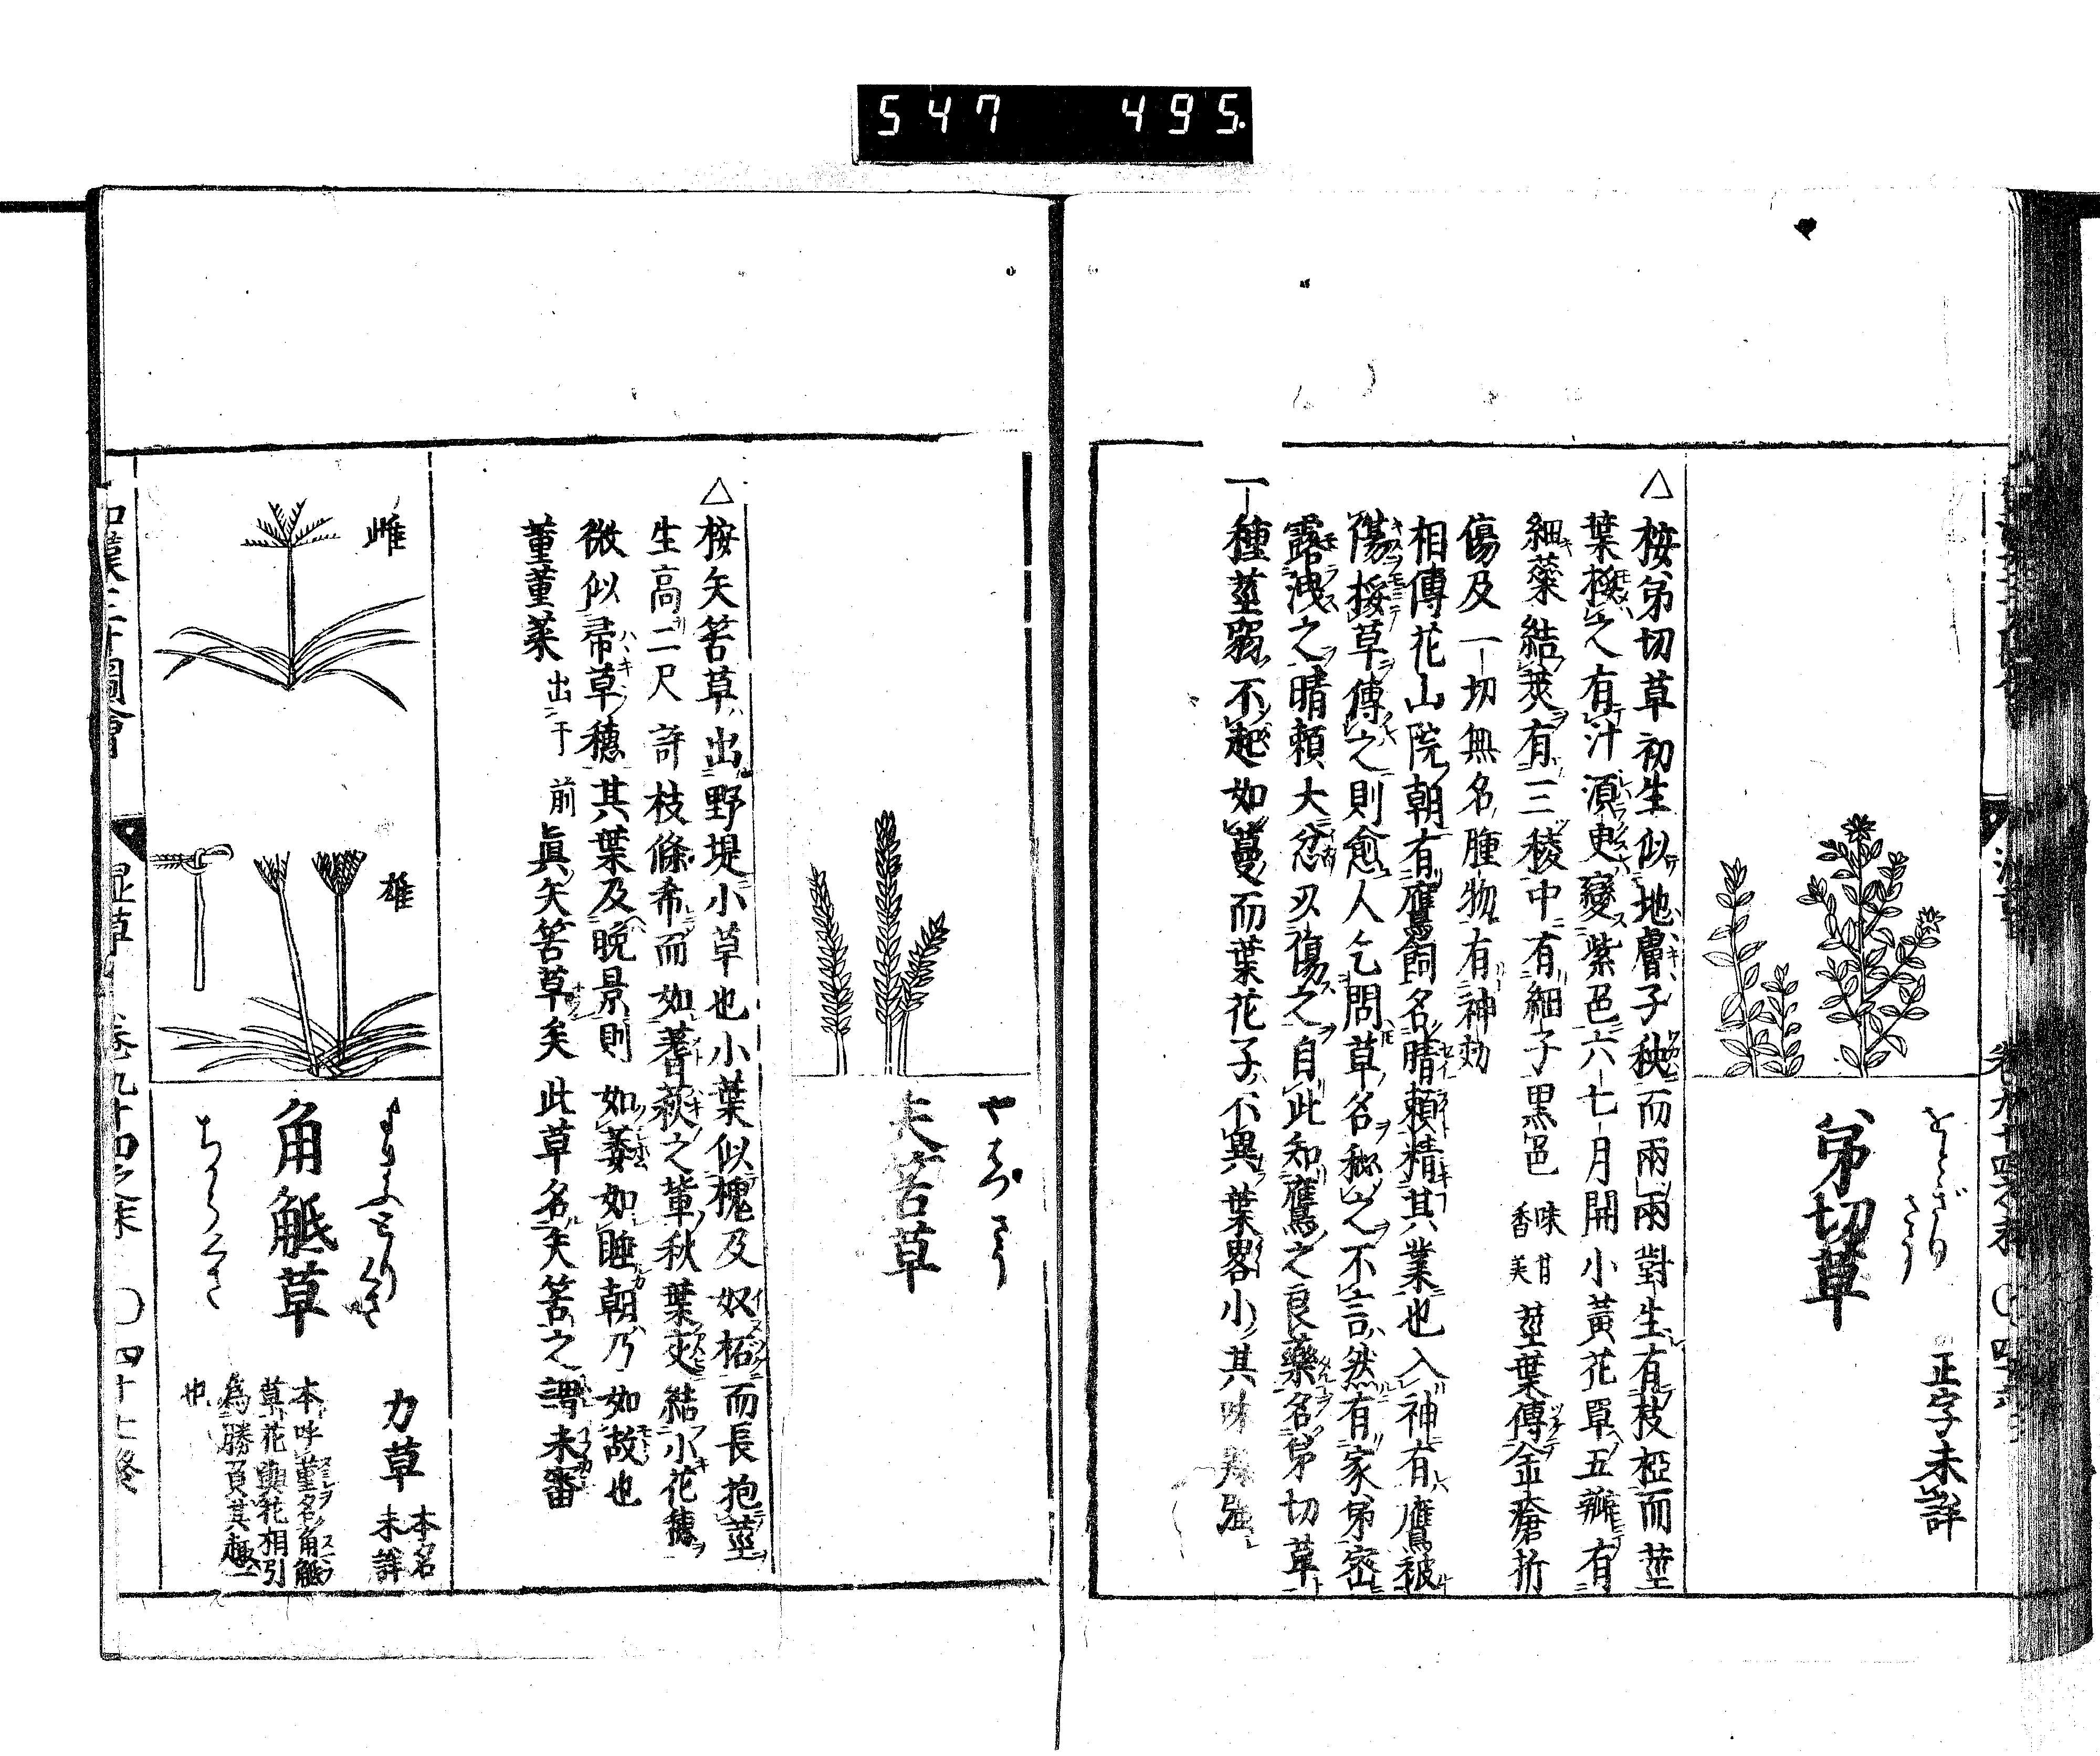 547 495.
をとぎり
さう
弟切草
正字未詳
△按弟切草初生似地膚子秧而兩兩對生有枝椏而莖
葉挼之有汁須臾變紫色六七月開小黃花單五瓣有
細蘂結莢有三稜中有細子黑色 味甘香美 莖葉傅金瘡折
傷及一切無名腫物有神効
相傳花山院朝有鷹飼名晴賴精其業也入神有鷹被
傷挼草傅之則愈人乞問草名秘之不言然有家弟密
露洩之晴賴大忿刄傷之自此知鷹之良藥名弟切草
一種莖弱不起如蔓而葉花子不異葉畧小其味
やはづさう
矢筈草
△按矢筈草出野堤小草也小葉似槐及奴柘而長抱莖
生高二尺許枝條希而如蓍萩之軰秋葉夾結小花穗
微似帚草穗其葉及晚景則如萎如睡朝乃如故也
董董菜 出于前 眞矢筈草矣此草名矢筈之謂未審
雌
雄
すまふとりくさ
角觝草
ちからくさ
力草 本名未詳
本呼菫名角觝
草花與花相引
為勝負其趣一
也
和漢三才圖會 濕草 卷九十四之末 〇四十七終